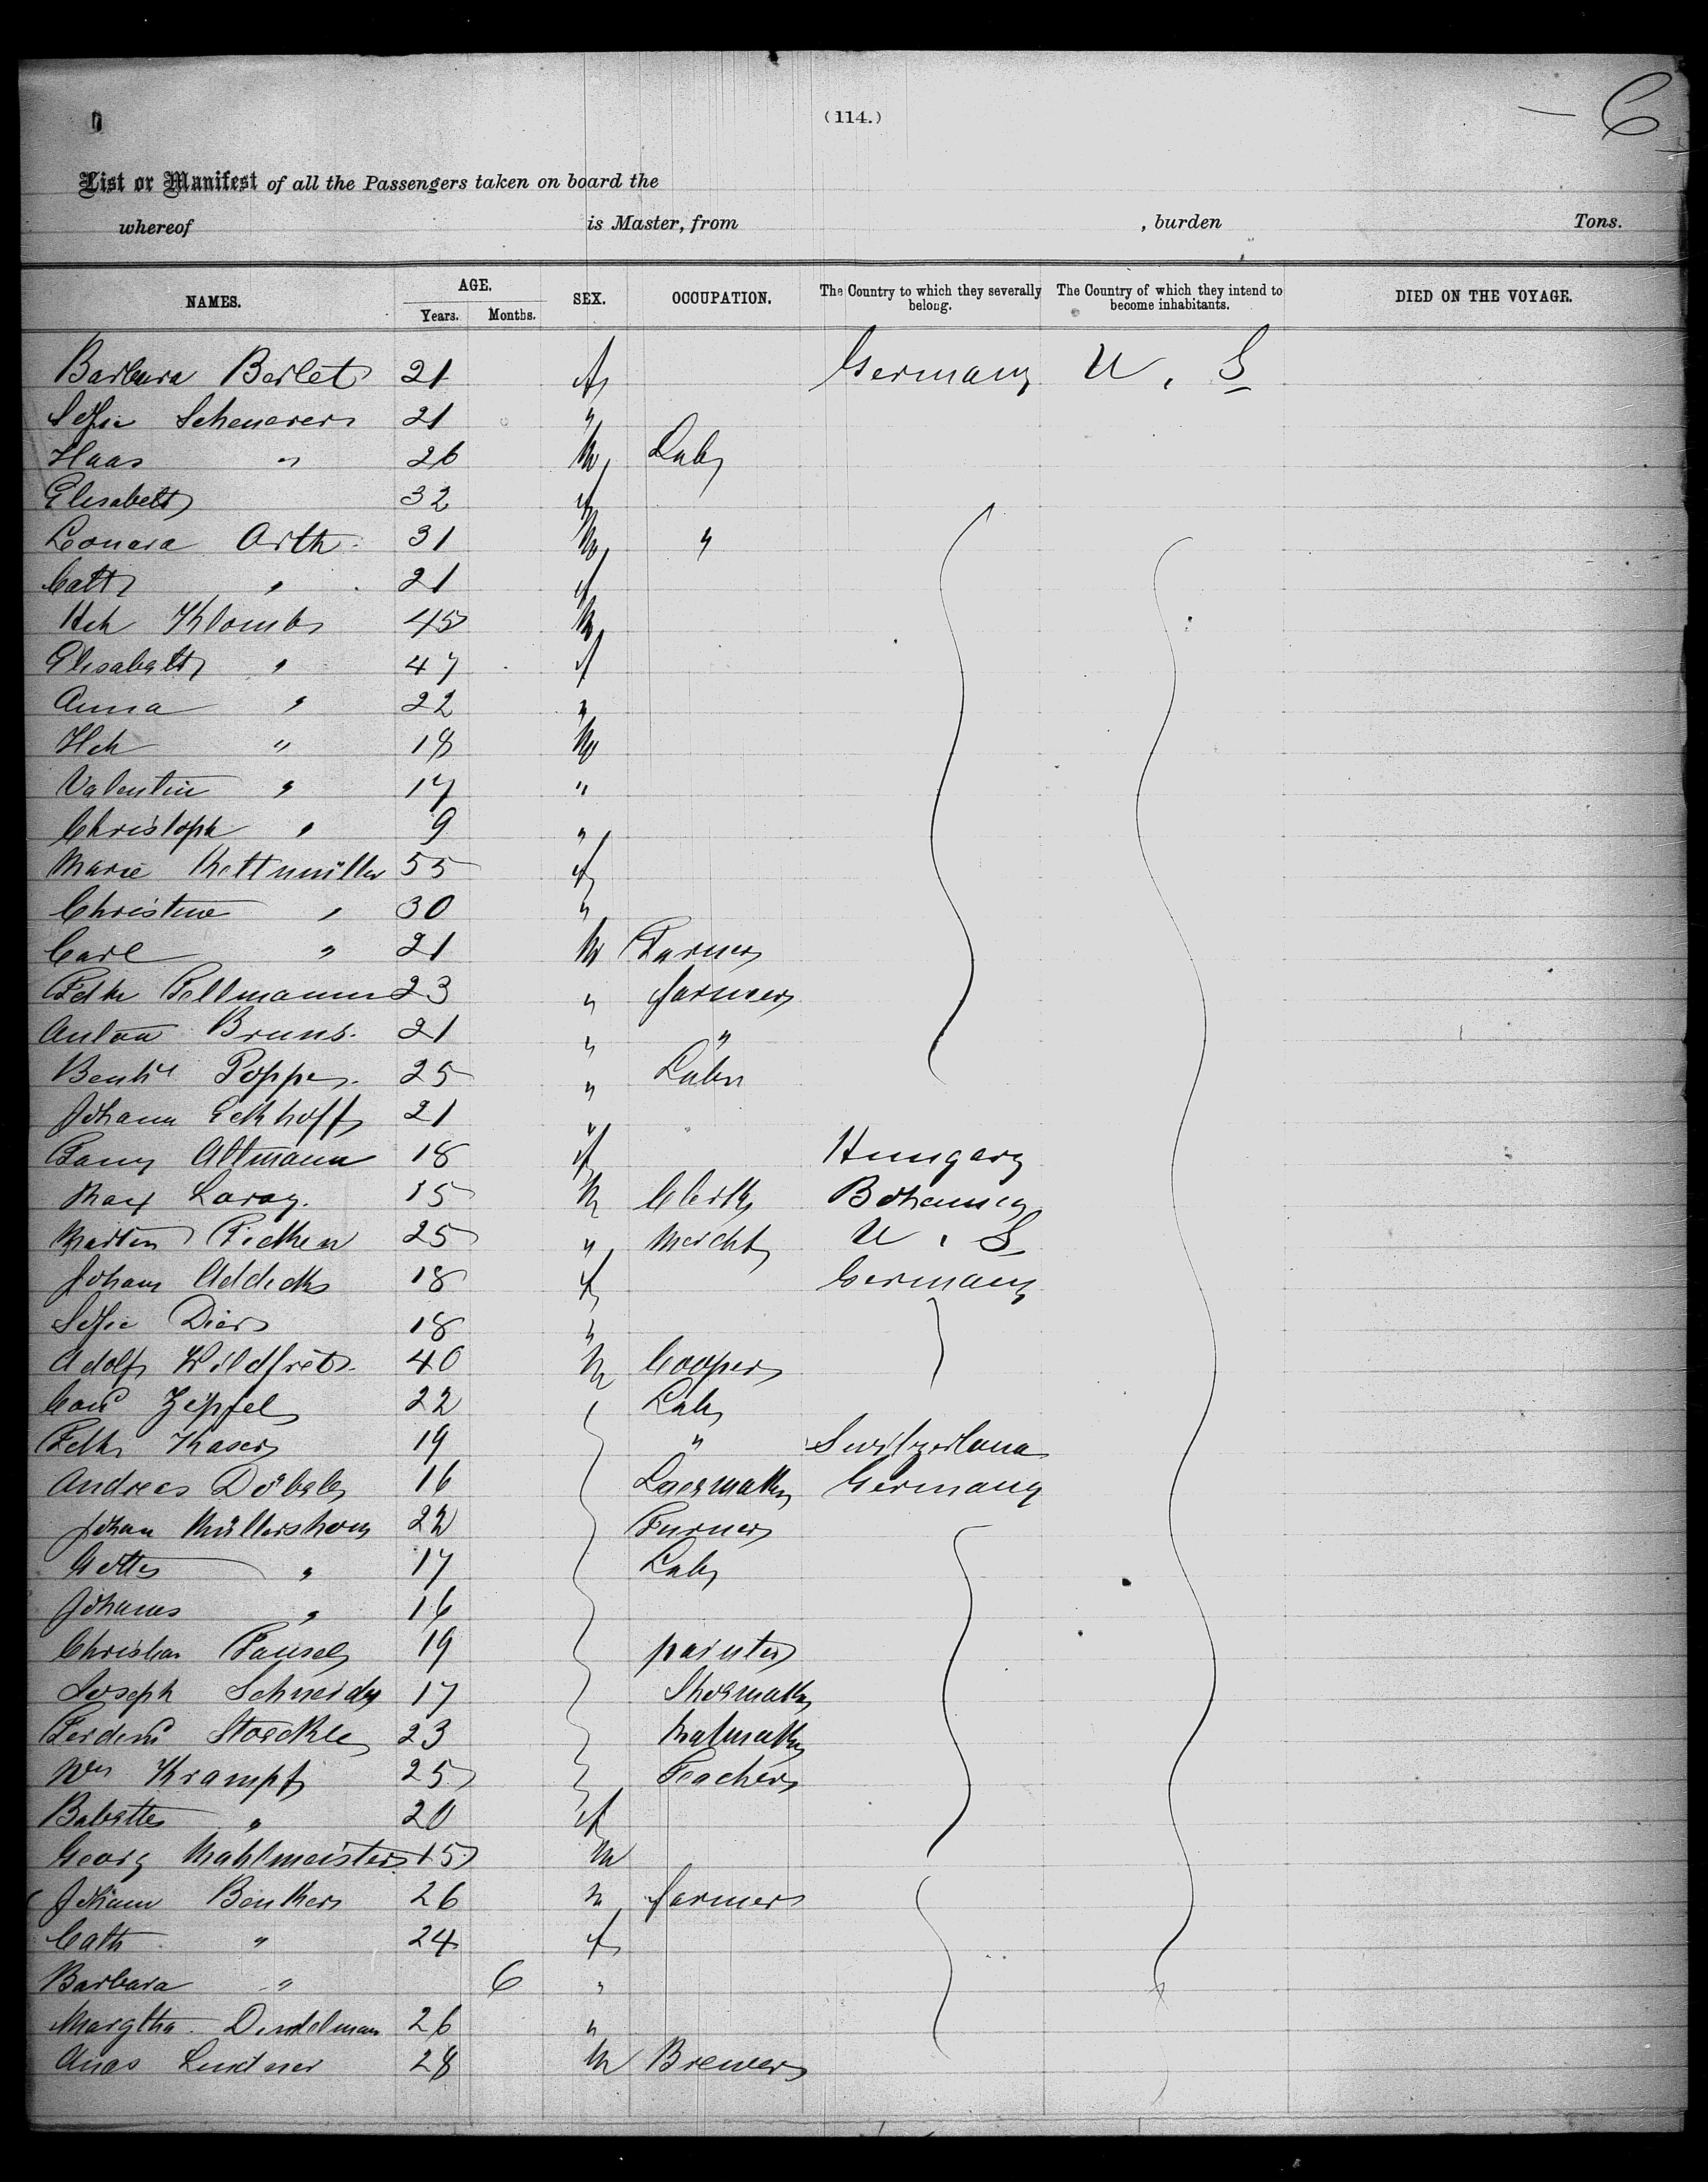 (114.)
6
List or Manifest of all the Passengers taken on board the
whereof is Master, from , burden Tons.
NAMES. AGE. Years. Months. SEX. OCCUPATION. The Country to which they severally belong. The Country of which they intend to become inhabitants. DIED ON THE VOYAGE.
Barbara Berlet 21 f Germany U. S
Sofie Scheuerer 21 "
Haas " 26 M Lab
Elisabeth 32 f
Conara Orth 31 M "
Cath " 21 f
Hch Klomb 45 M
Elisabeth " 47 f
Anna " 22 "
Hch " 18 M
Valentin " 17 "
Christoph " 9 "
Marie Kettnmiller 55 f
Christine " 30 "
Carl " 21 M Farmer
Fdk Fellmann 23 " farmer
Anton Bruns. 21 " "
Poppe 25 " Labr
Johann Eckhoff 21 "
Fany Altmann 18 f Hungary
Max 15 M Clerk Bohemia
Martin Ficken 25 " Mercht U. S
Johann Addicks 18 f Germany
Sofie Diers 18 "
Adolf Wildfret 40 M Cooper
Zipfel 22 Lab
Fdk Kaser 19 " Switzerland
Andreas Döbele 16 Germany
Johan Müllershon 22
" 17 Lab
Johanes " 16
Christian Fausel 19 painter
Joseph Schneider 17 Shoemaker
Ferdind Stoeckle 23 Hatmaker
Wm Krampf 25 Teacher
Babette " 20 f
Georg Mahlmeister 15 M
Johann Benker 26 m farmer
Cath " 24 f
Barbara " 6 "
Margtha Dindelman 26 "
Lindner 28 M Brewer